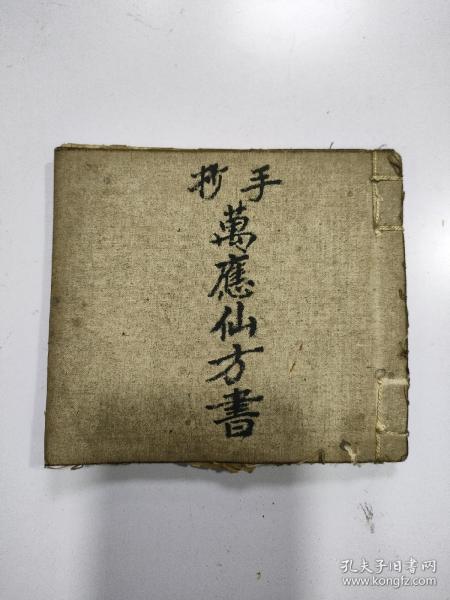 手抄
萬應仙方書
孔夫子旧书网
www.kongfz.com